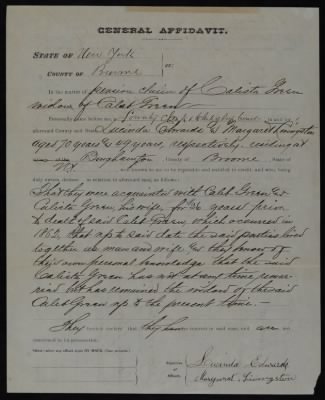 GENERAL AFFIDAVIT.
STATE OF New York
COUNTY OF Broome
In the matter of pension claim of Calista Green
widow of Caleb Green
Personally came before me, a County
aforesaid County and State, Edwards & Margaret Livingston
aged 70 years & 69 years, respectively, residing at
Binghamton, County of Broome, State of
N.Y. well known to me to be reputable and entitled to credit, and who, being
duly sworn, declare in relation to aforesaid case as follows:
That they were acquainted with Caleb Green &
Calista Green, his wife, for years prior
to death of said Caleb Green which occurred in
that up to said date the said parties lived
together as man and wife & they know of
their own personal knowledge that the said
Calista Green has not at any time remar-
ried but has remained the widow of the said
Caleb Green up to the present time.—
They further declare that they have no interest in said case, and are not
concerned in its prosecution.
Signature of Affiants.
Edwards
Margaret Livingston